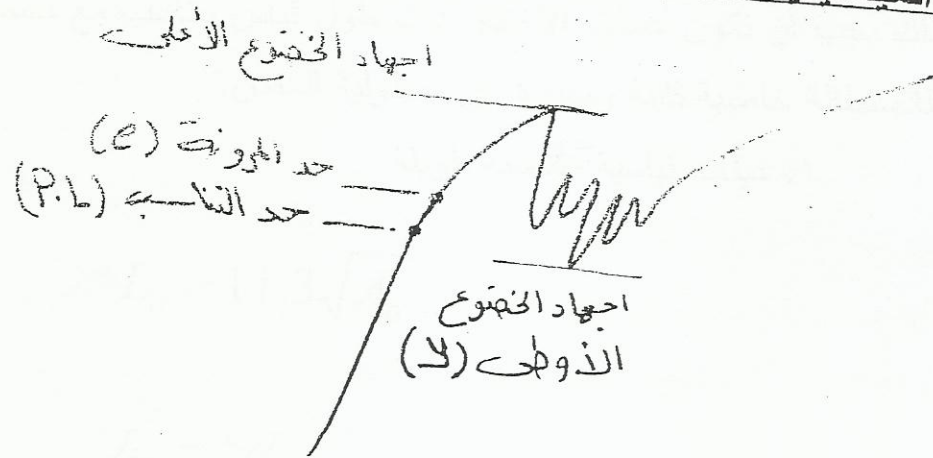 اجهاد الخضوع الأعلى
حد المرونة (e)
حد التناسب (P.L)
اجهاد الخضوع
الأوطى (y)